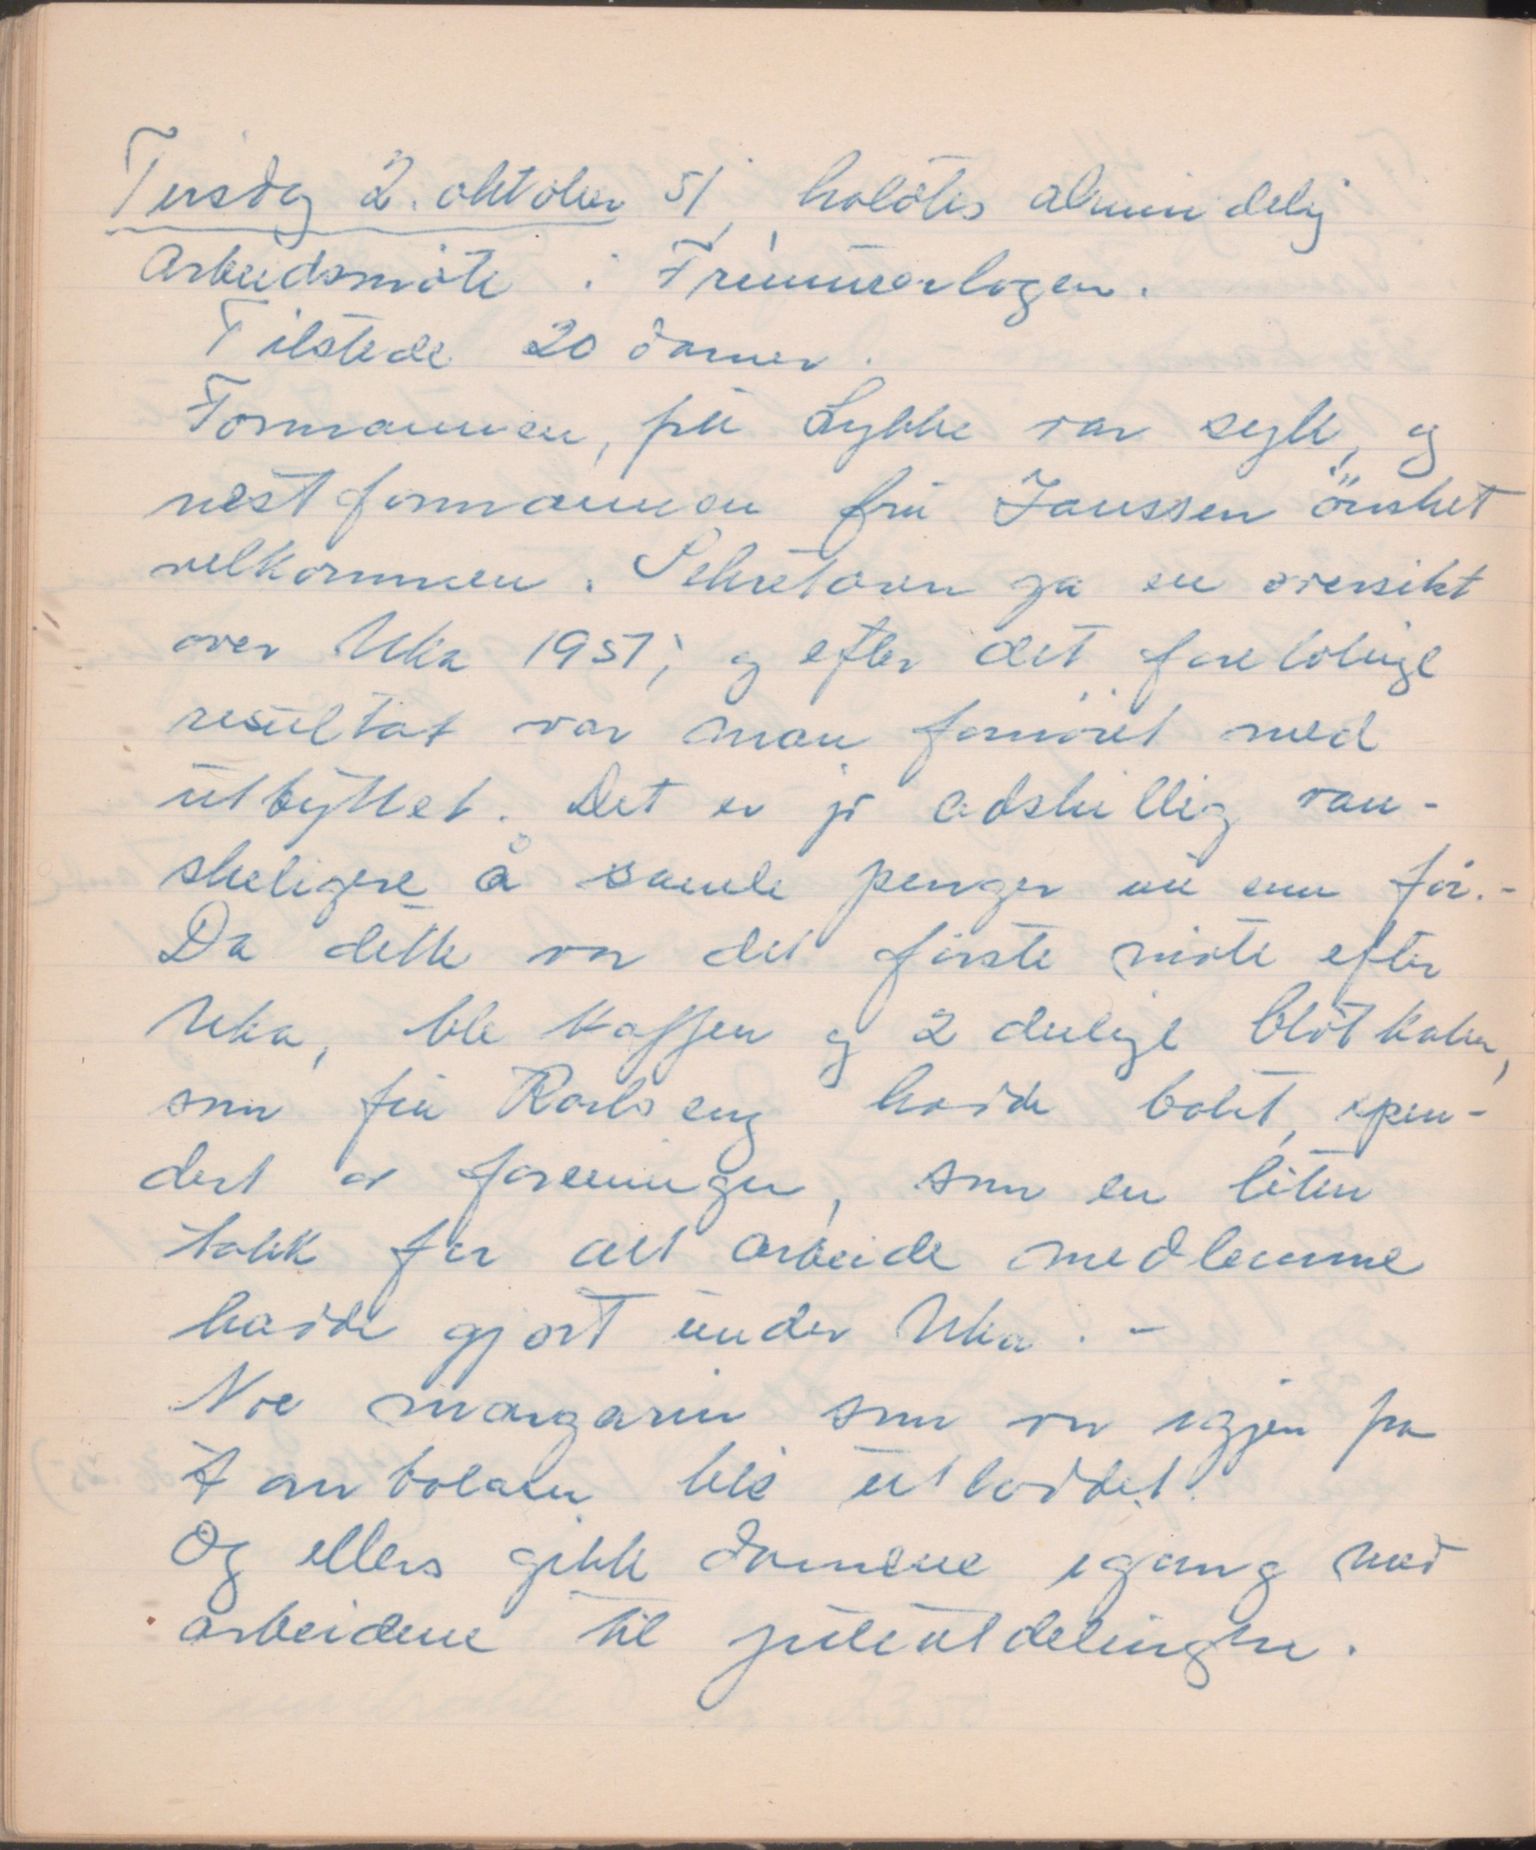 Tirsdag 2. oktober 51, holdtes almindelig
Arbeidsmöte i Frimurerlogen.
Tilstede 20 damer.
Formannen, fru Lykke var syk, og
nestformannen fru Janssen önsket
velkommen. Sekretæren ga en oversikt
over Uka 1951; og efter det forelöbige
resultat var man fornöiet med
utbyttet. Det er jo adskillig van-
skeligere å samle penger nu enn för. -
Da dette var det förste möte efter
Uka, ble kaffen og 2 deilige blötkaker,
som fru Karlseng hadde bakt, spen-
dert av foreningen, som en liten
takk for alt arbeide medlemme
hadde gjort under Uka. -
Noe margarin som var igjen fra
tombolaen ble utloddet.
Og ellers gikk damene igang med
arbeidene til juleutdelingen.